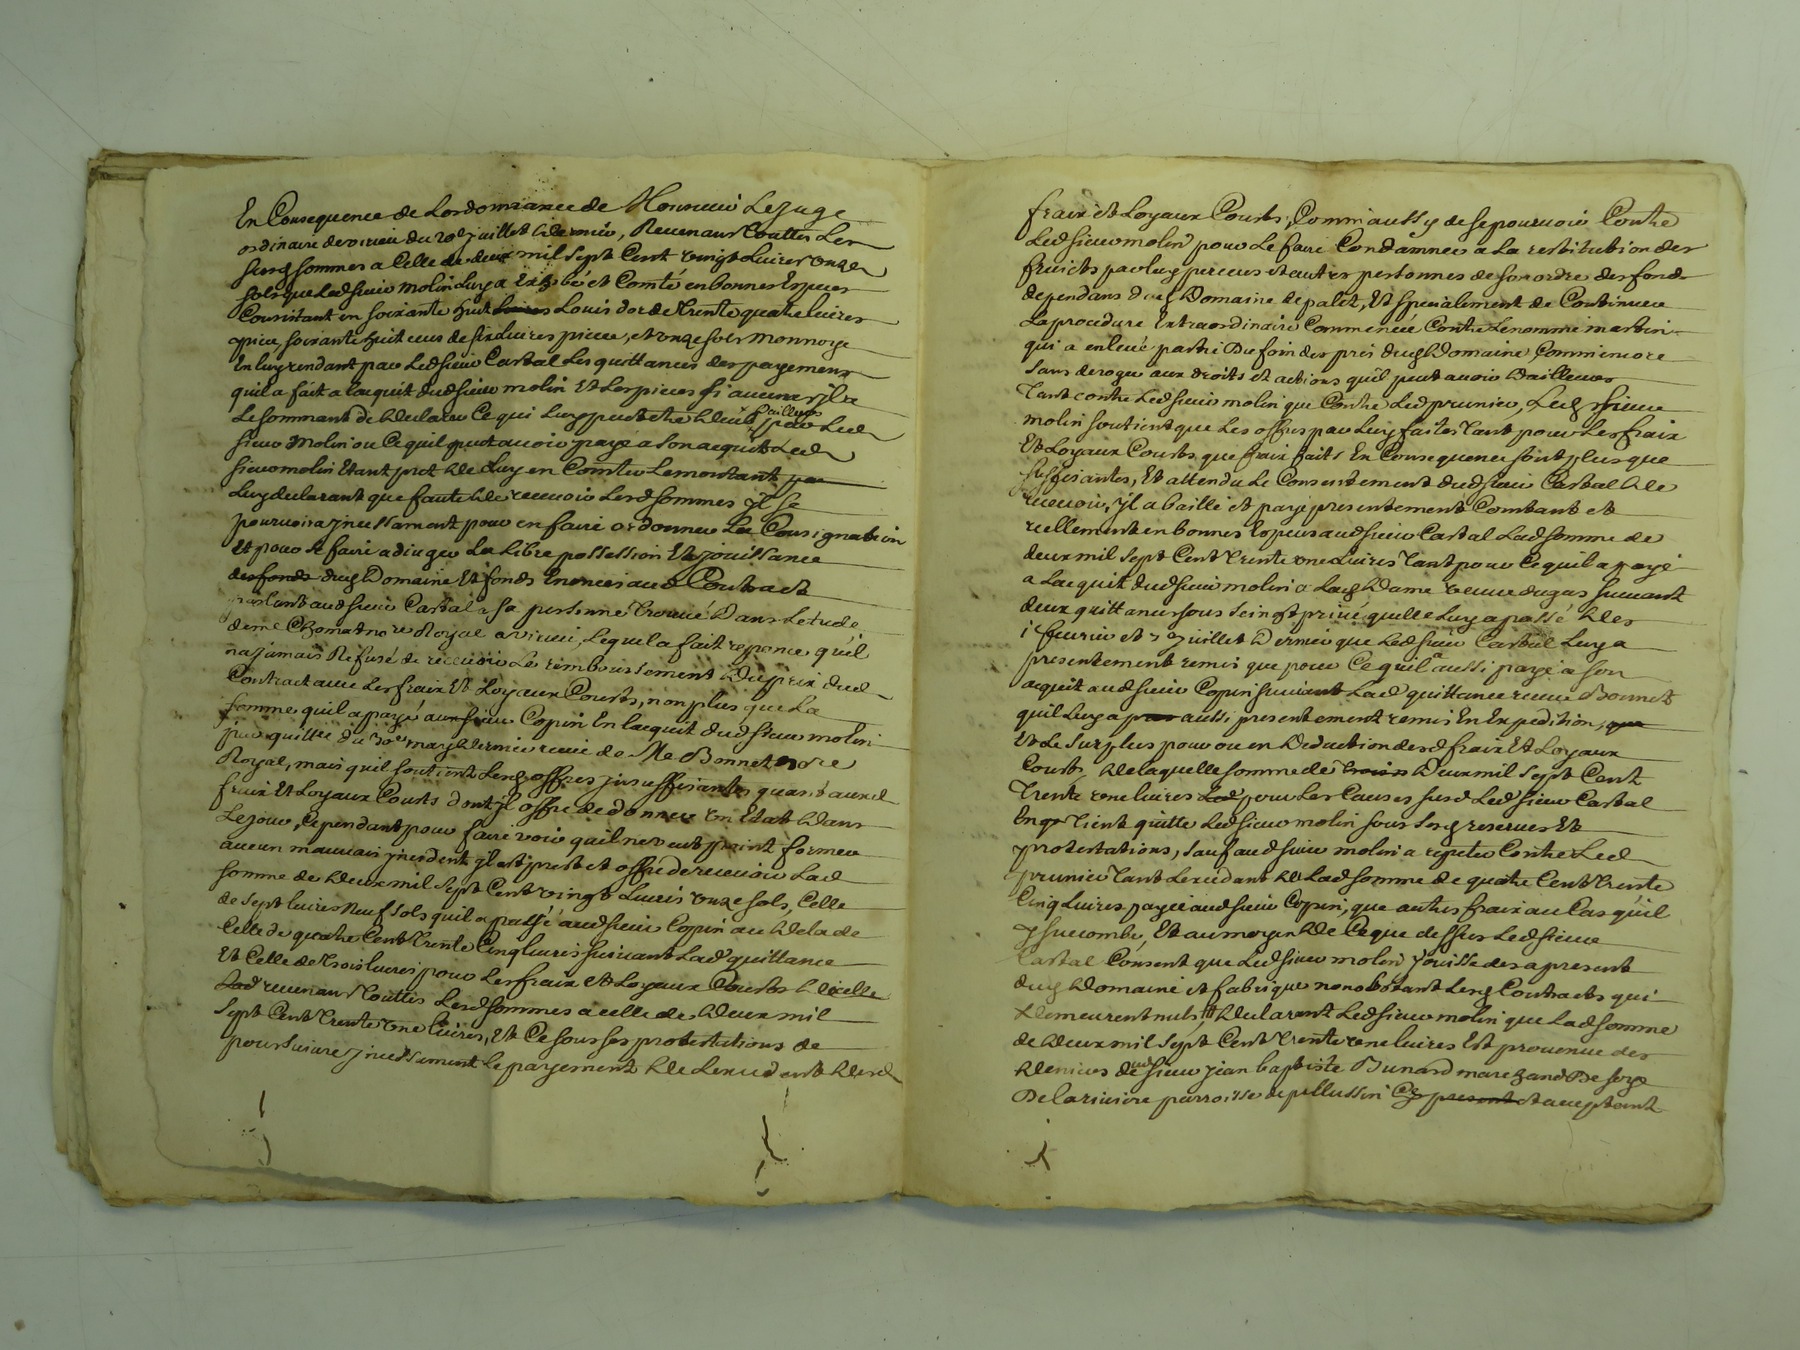 En Consequence de Lordonnance de Monsieur Le Juge
ordinaire de virieu du 20e juillet dernier, Revenant touttes Les
susd sommes a Celle de deux mil sept Cent vingt Livres onze
sols que Led sieur molin Luy a Exibé et Comté en bonnes Especes
Consistant en soixante huit Livres Louis dor de trente quatre livres
piece, soixante huit ecus de six livres piece, et onze sols monnoye
En luy rendant par Led sieur Castal Les quittances des payements
quil a fait a lacquit dud sieur molin Et Les pieces si aucune yl a
Le sommant de declarer Ce qui Luy peut etre deub dailleurs par Led
sieur Molin ou Ce quil peut avoir payé a son acquit Led
sieur molin Etant pret de Luy en Comter Le montant par
Luy declarant que faute de recevoir Lesd sommes yl se
pourvoira jncessament pour en faire ordonner La Consignation
Et pour se faire adjuger La Libre possession Et jouissance
des fonds dud Domaine Et fonds Enoncés aud Contract
parlant aud sieur Castal a sa personne trouvé Dans Letude
de me notre Royal a virieu, Lequel a fait reponce quil
na jamais Refusé de recevoir Le remboursement du prix dud
Contract avec Les fraix Et Loyaux Cousts, non plus que La
somme quil a payé aud sieur Copin En lacquit dud sieur molin
quittce du 30e may dernier receue de Me Bonnet nore
Royal, mais quil soutient Lesd offres jnsuffisantes quant auxd
fraix Et Loyaux Cousts dont yl offre de donner Un Etat dans
Le jour, Cependant pour faire voir quil ne veut point former
aucun mauvais jncident yl est prest et offre de recevoir Lad
somme de deux mil sept Cent vingt Livres onze sols, Celle
de sept livres Neuf sols quil a passé aud sieur Copin au dela de
Celle de quatre Cent trente Cinq livres suivant Lad quittance
Et Celle de trois livres pour Les fraix Et Loyaux Cousts d Icelle
Lad revenant touttes Lesd sommes a celle de deux mil
sept Cent trente une livres, Et Ce sous ses protestations de
poursuivre jncessament Le payement de Lexcedent desd
fraix et Loyaux Cousts, Comm aussy de se pourvoir Contre
Led sieur molin pour Le faire Condamner a La restitution des
fruicts par luy perceus et autres personnes de son ordre des fonds
dependans dud Domaine de palet, Et specialement de Continuer
La procedure Extraordinaire Commencée Contre Le nommé martin
qui a enlevé partie Du foin des prés dud Domaine Comm encore
sans deroger aux droits et actions quil peut avoir Dailleurs
tant contre Led sieur molin que Contre Led prunier, Led sieur
molin soutient que Les offres par Luy faites tant pour Les fraix
Et Loyaux Cousts que fraix faits En Consequence sont plus que
suffisantes, Et attendu Le Consentement dud sieur Castal de
recevoir, yl a baillé et payé presentement Comtant et
reellement en bonnes Especes aud sieur Castal Lad somme de
deux mil sept Cent trente une Livres tant pour Ce quil a payé
a Lacquit dud sieur molin a Lad Dame veuve dugas suivant
deux quittances sous seingt privé quelle Luy a passé des
1 fevrier et 7 Juillet Dernier que Led sieur Castal Luy a
presentement remis que pour Ce quil a aussi payé a son
acquit aud sieur Copin suivant Lad quittance receue Bonnet
quil Luy a par aussi presentement remis En Expedition, que
Et Le surplus pour ou en Deduction desd fraix Et Loyaux
Cousts, de laquelle somme de trois Deux mil sept Cent
trente une livres Led pour Les Causes susd Led sieur Castal
En tient quitte Led sieur molin sous sesd reserves Et
protestations, sauf aud sieur molin a repeter Contre Led
prunier tant Lexcedant de Lad somme de quatre Cent trente
Cinq Livres payée aud sieur Copin, que autres fraix au Cas quil
y sucombe, Et au moyen de Ce que dessus Led sieur
Castal Consent que Led sieur molin jouisse des apresent
dud Domaine et fabrique nonobstant Lesd Contracts qui
demeurent nuls, declarant Led sieur molin que Lad somme
de deux mil sept Cent trente une livres Est provenue des
deniers dud sieur jean baptiste Bunard marchand De soye
De la riviere parroisse de pellussin Cy present et acceptant